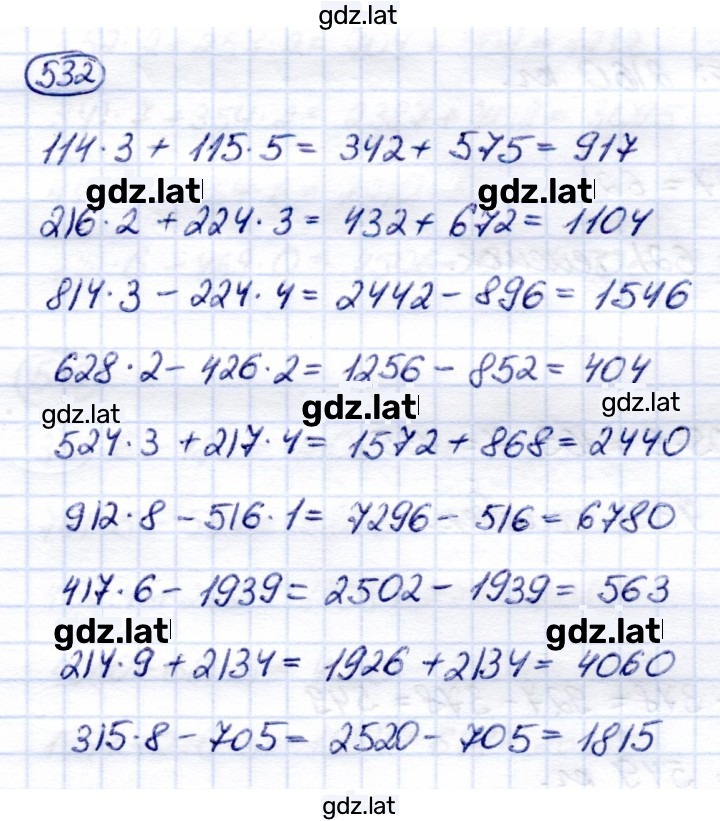 gdz.lat
532
114·3 + 115·5 = 342 + 575 = 917
gdz.lat gdz.lat
216·2 + 224·3 = 432 + 672 = 1104
814·3 - 224·4 = 2442 - 896 = 1546
628·2 - 426·2 = 1256 - 852 = 404
gdz.lat gdz.lat gdz.lat
524·3 + 217·4 = 1572 + 868 = 2440
912·8 - 516·1 = 7296 - 516 = 6780
417·6 - 1939 = 2502 - 1939 = 563
gdz.lat gdz.lat
214·9 + 2134 = 1926 + 2134 = 4060
315·8 - 705 = 2520 - 705 = 1815
gdz.lat